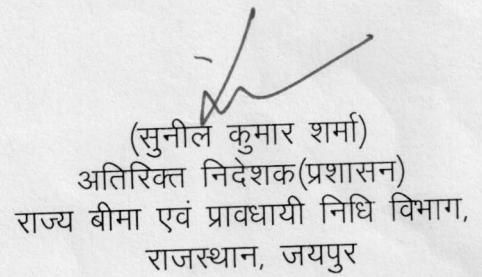 (सुनील कुमार शर्मा)
अतिरिक्त निदेशक(प्रशासन)
राज्य बीमा एवं प्रावधायी निधि विभाग,
राजस्थान, जयपुर